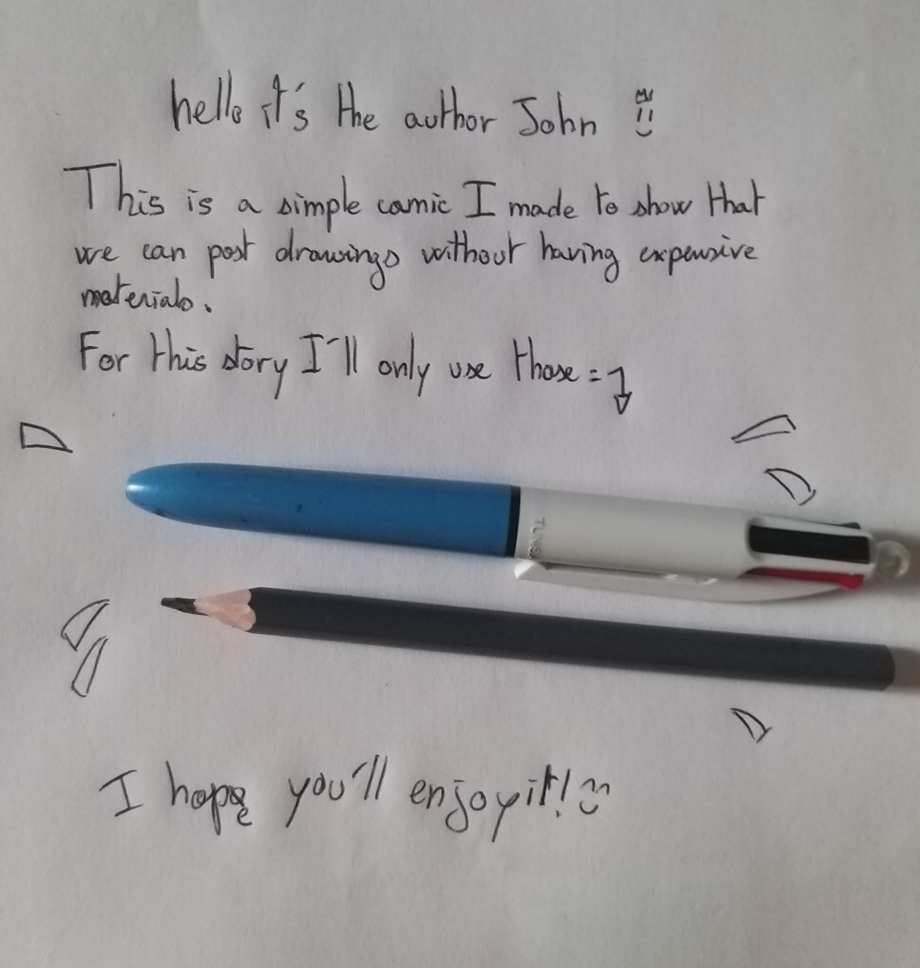 hello it's the author John
This is a simple comic I made to show that
we can post drawings without having expensive
materials.
For this story I'll only use those =
I hope you'll enjoy it!